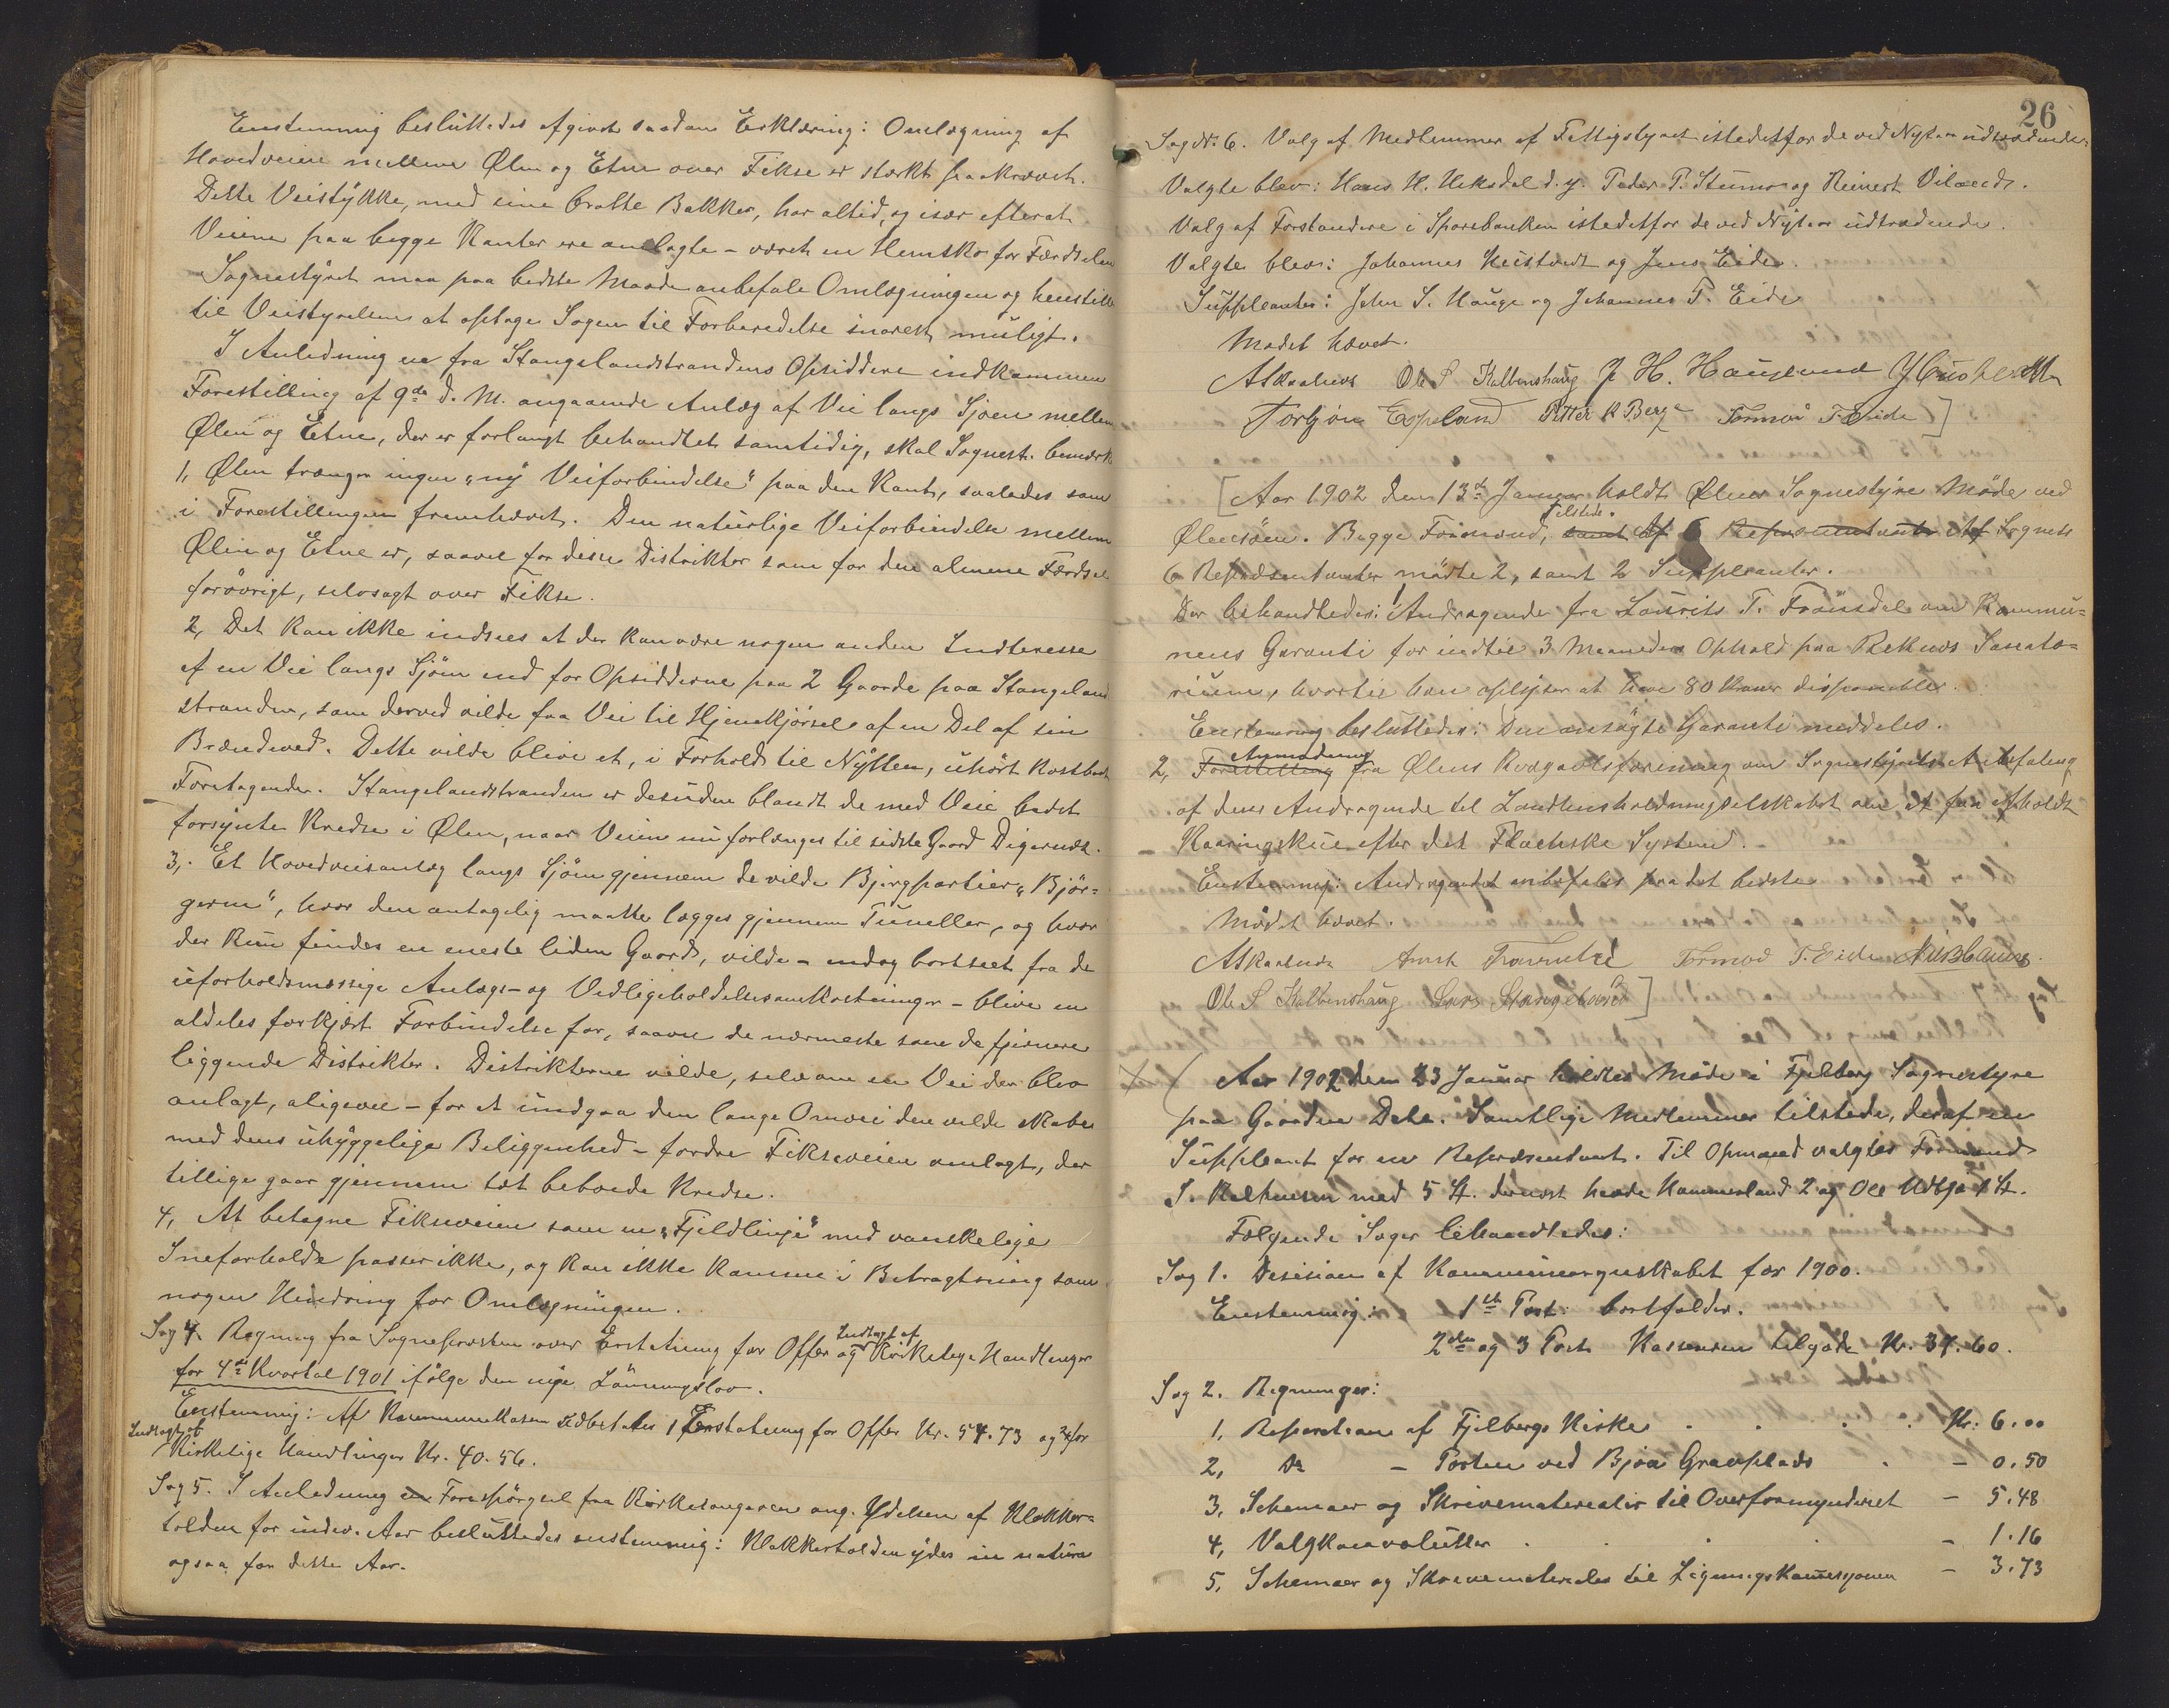 Enstemmig besluttedes afgivet saadan Erklæring: Omlægning af
Hovedveien mellem Ølen og Etne over Fikse er stærkt paakrævet.
Dette Veistykke, med sine bratte Bakker, har altid, og især efterat
Veiene paa begge Kanter ere omlagte – været en Hemsko for Færdselen
Sognestyret maa paa bedste Maade anbefale Omlægningen og henstille
til Veistyrelsen at optage Sagen til Forberedelse snarest muligt.
I Anledning en fra Stangelandstrandens Opsiddere indkommen
Forestilling af 9de d. M. angaaende Anlæg af Vei langs Sjøen mellem
Ølen og Etne, der er forlangt behandlet samtidig, skal Sognest. bemærke
1, Ølen trænger ingen "ny Veiforbindelse" paa den Kant, saaledes som
i Forestillingen fremhævet. Den naturlige Veiforbindelse mellem
Ølen og Etne er, saavel for disse Distrikter som for den almene Færdsel
forøvrigt, selvsagt over Fikse.
2, Det kan ikke indsees at der kan være nogen anden Interesse
af en Vei langs Sjøen end for Opsidderne paa 2 Gaarde paa Stangeland
stranden, som derved vilde faa Vei til Hjemkjørsel af en Del af sin
Brændeved. Dette vilde blive et, i Forhold til Nytten, uhørt kostbart
Foretagende. Stangelandstranden er desuden blandt de med Veie bedst
forsynte Kredse i Ølen, naar Veien nu forlænges til sidste Gaard Digernes.
3, Et Hovedveisanlæg langs Sjøen gjennem de vilde Bjergpartier "Bjør-
gerne", hvor den antagelig maatte lægges gjennem Tuneller, og hvor
der kun findes en eneste liden Gaard, vilde – endog bortseet fra de
uforholdsmæssige Anlægs- og Vedligeholdelsesomkostninger – blive en
aldeles forkjært Forbindelse for, saavel de nærmeste som de fjernere
liggende Distrikter. Distrikterne vilde, selv om en Vei der blev
anlagt, aligevel – for at undgaa den lange Omvei den vilde skabe
med dens uhyggelige Beliggenhed – fordre Fikseveien omlagt, der
tillige gaar gjennem tæt beboede Kredse.
4, At betegne Fikseveien som en "Fjeldlinje" med vanskelige
Sneforholde passer ikke, og kan ikke komme i Betragtning som
nogen Hindring for Omlægningen.
Sag 4. Regning fra Sognepræsten over Erstatning for Offer og Indtægt af Kirkelige Handlinger
for 4de Kvartal 1901 ifølge den nye Lønningslov.
Enstemmig: Af Kommunekassen udbetales 1 Erstatning for Offer Kr. 54.73 og 2 for
Indtægt af Kirkelige Handlinger Kr. 40.56.
Sag 5. I Anledning en Forespørgsel fra Kirkesangeren ang. Ydelsen af Klokker-
tolden for indev. Aar besluttedes enstemmig: Klokkertolden ydes in natura
ogsaa for dette Aar.
26
Sag Nr. 6. Valg af Medlemmer af Fattigstyret istedetfor de ved Nytaar udtrædende.
Valgte blev: Hans H. Heksdal d. y. Peder P. Stumo og Reinert Vilande.
Valg af Forstandere i Sparebanken istedetfor de ved Nytaar udtrædende.
Valgte blev: Johannes Keistvedt og Jens Eide.
Suppleanter: John S. Hauge og Johannes T. Eide
Mødet hævet.
A Skaaluer Ole S Kalbenshaug J H. Haugland
Torbjørn Espeland Petter K Berge Tormod T. Eide ]
[ Aar 1902 den 13de Januar holdt Ølens Sognestyre Møde ved
Ølensøen. Begge Formænd, tilstede. samt af 6 Repræsentanter Af Sognets
6 Repræsentanter mødte 2, samt 2 Suppleanter.
Der behandledes: 1 Andragende fra Laurits T. Frønsdal om Kommu-
nens Garanti for indtil 3 Maaneders Ophold paa Reknes Sanato-
rium, hvortil han oplyser at have 80 Kroner disponibler.
Enstemmig besluttedes: Den ansøgte Garanti meddeles.
2, Forestilling Anmodning fra Ølens Kvægavlsforening om Sognestyrets Anbefaling
af dens Andragende til Landhusholdningselskabet om at faa afholdt
Kaaringskue efter det Flachske System.
Enstemmig: Andragendet anbefales paa det bedste
Mødet hævet.
A Skaaluer Amst Tormod T. Eide
Ole S Kalbenshaug Lars Stangeland ]
Aar 1902 den 23 Januar holdtes Møde i Fjelberg Sognestyre
paa Gaarden Dale. Samtlige Medlemmer tilstede, deraf en
Suppleant for en Repræsentant. Til Opmand valgtes Formand
S. Rælhusen med 5 St. dernæst havde Kammerland 2 og Ole Utbjoe 1 St.
Følgende Sager behandledes:
Sag 1. Desision af Kommuneregnskabet for 1900.
Enstemmig: 1ste Post: bortfalder.
2den og 3 Post Kasseren tilgode Kr. 34.60.
Sag 2. Regninger:
1, Reparation af Fjelbergs Kirke . . . Kr. 6.00
2, Do – Porten ved Bjoa Gravplads . – 0.50
3, Schemaer og Skrivematerialer til Overformynderiet – 5.48
4, Valgkonvolutter . . . – 1.16
5, Schemaer og Skrivematerialer til Ligningskommisjonen – 3.73